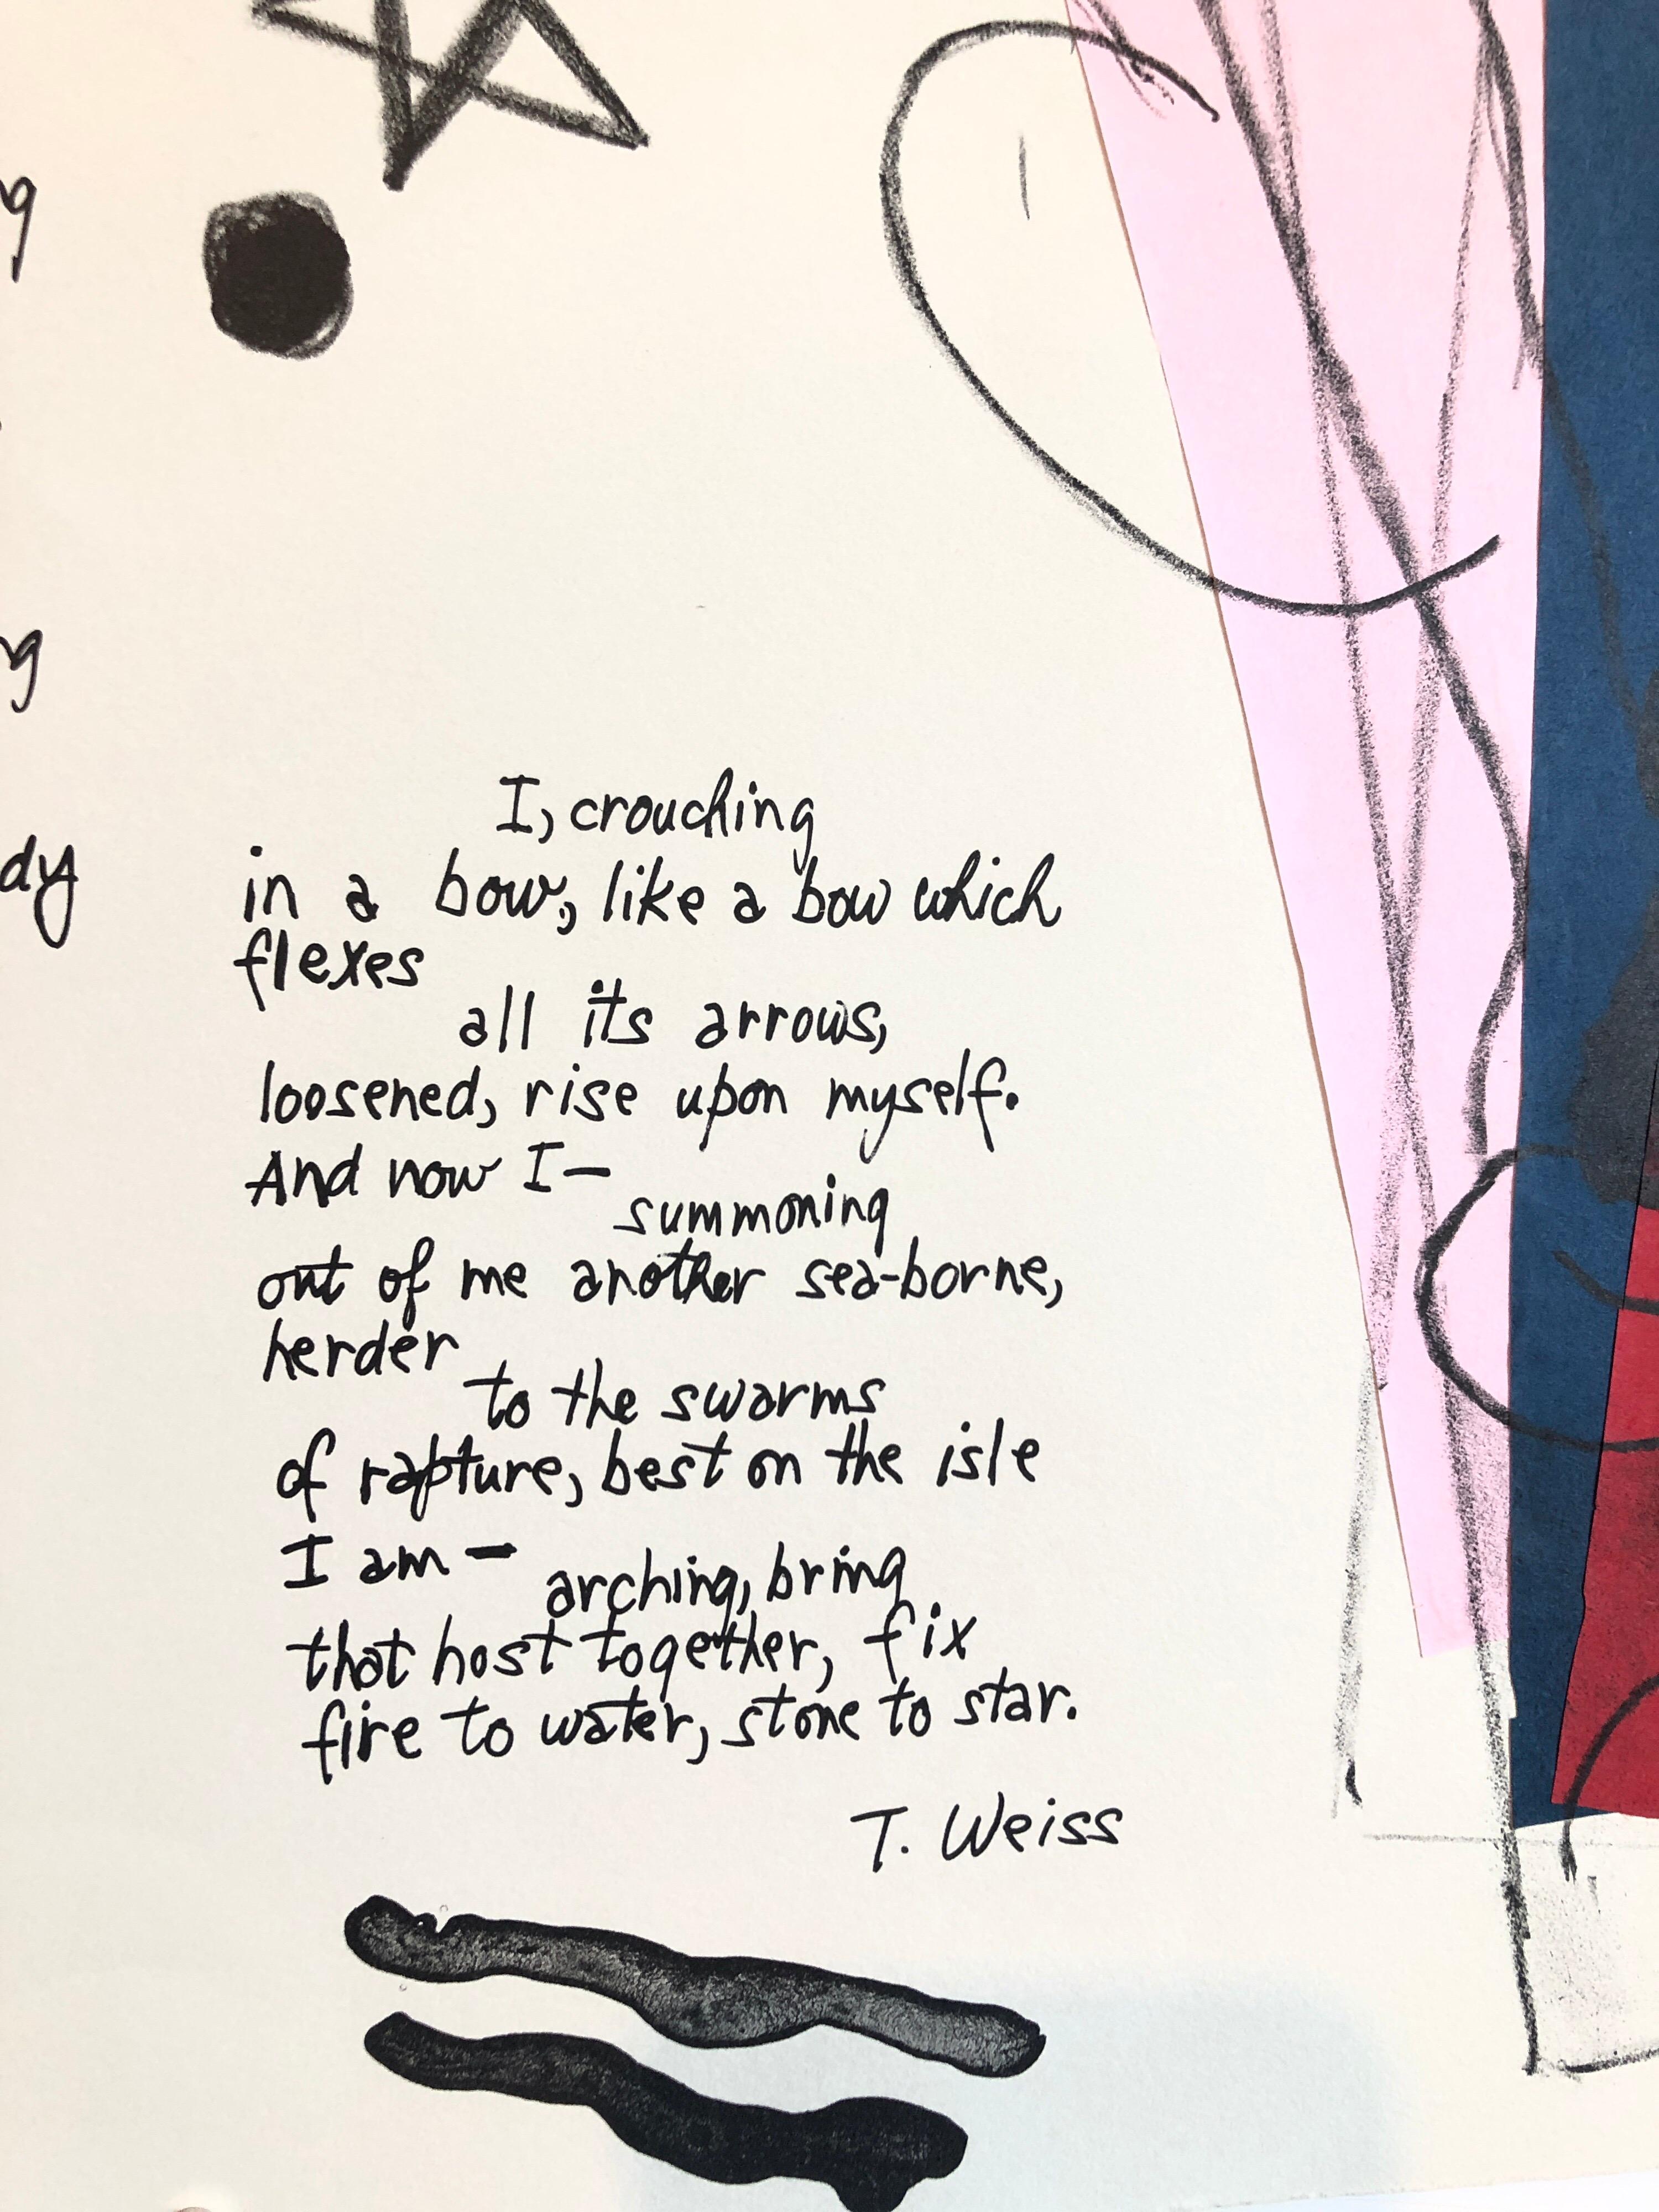 g
g
dy
I, crouching
in a bow, like a bow which
flexes
all its arrows,
loosened, rise upon myself.
And now I—
summoning
out of me another sea-borne,
herder
to the swarms
of rapture, best on the isle
I am —
arching, bring
that host together, fix
fire to water, stone to star.
T. Weiss